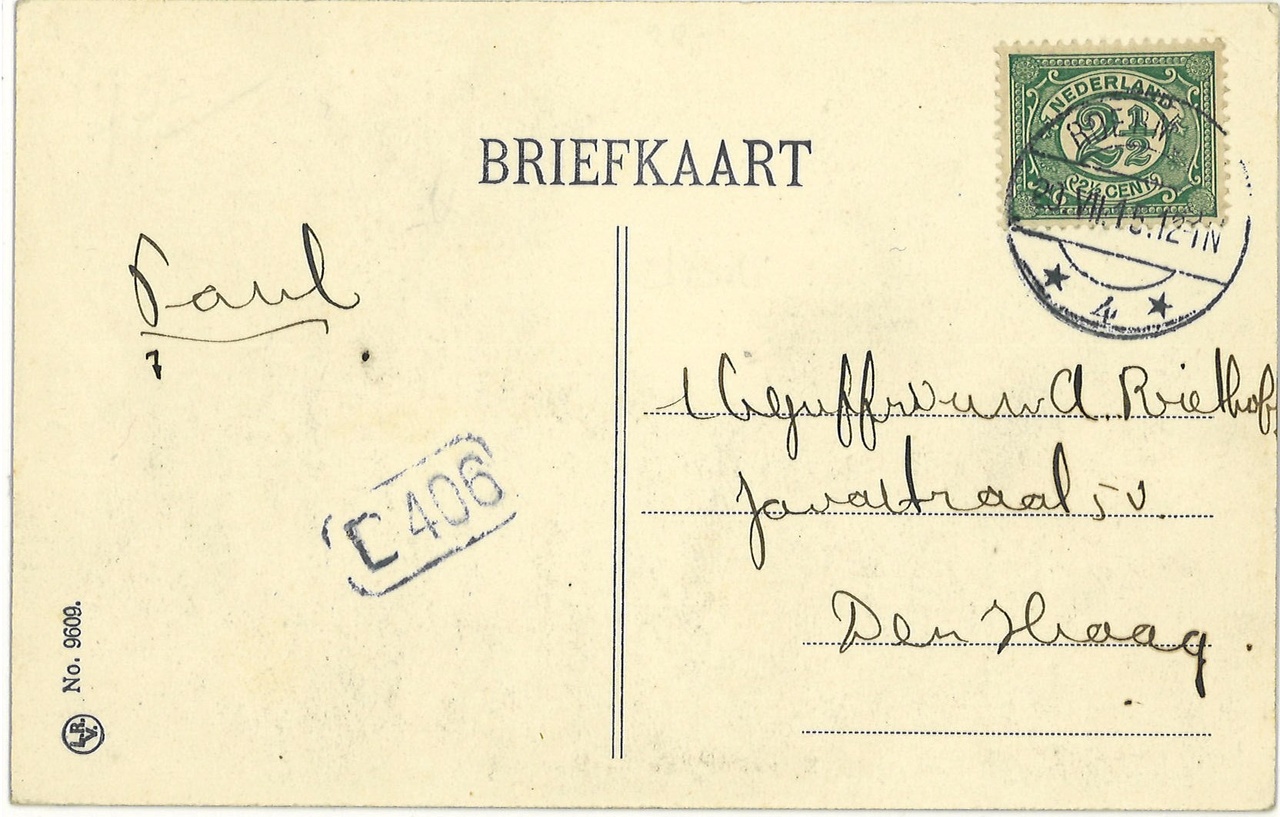 BRIEFKAART
NEDERLAND
2 1/2
2½ CENT
VII.15.12-1N
4
Paul
Mejuffrouw A. Riethof.
Javastraat 50.
Den Haag.
C 406
No. 9609.
L.R.V.